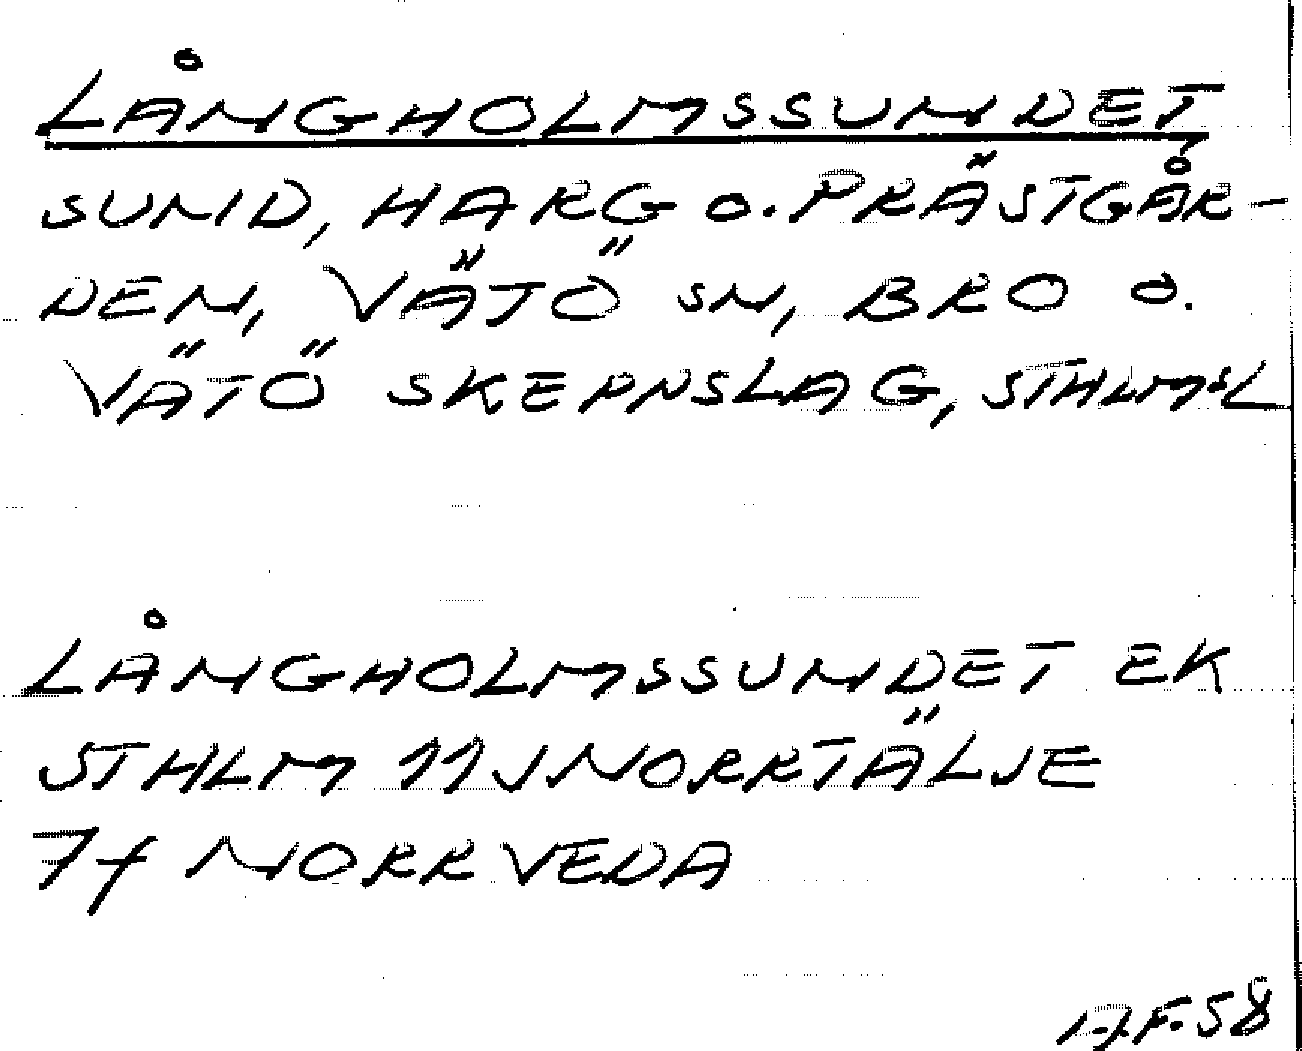 LÅNGHOLMSSUNDET
SUND, HARG O. PRÄSTGÅR-
DEN, VÄTÖ SN, BRO O.
VÄTÖ SKEPPSLAG, STHLMSL
LÅNGHOLMSSUNDET EK
STHLM 11J NORRTÄLJE
7f NORRVEDA
A.F.58